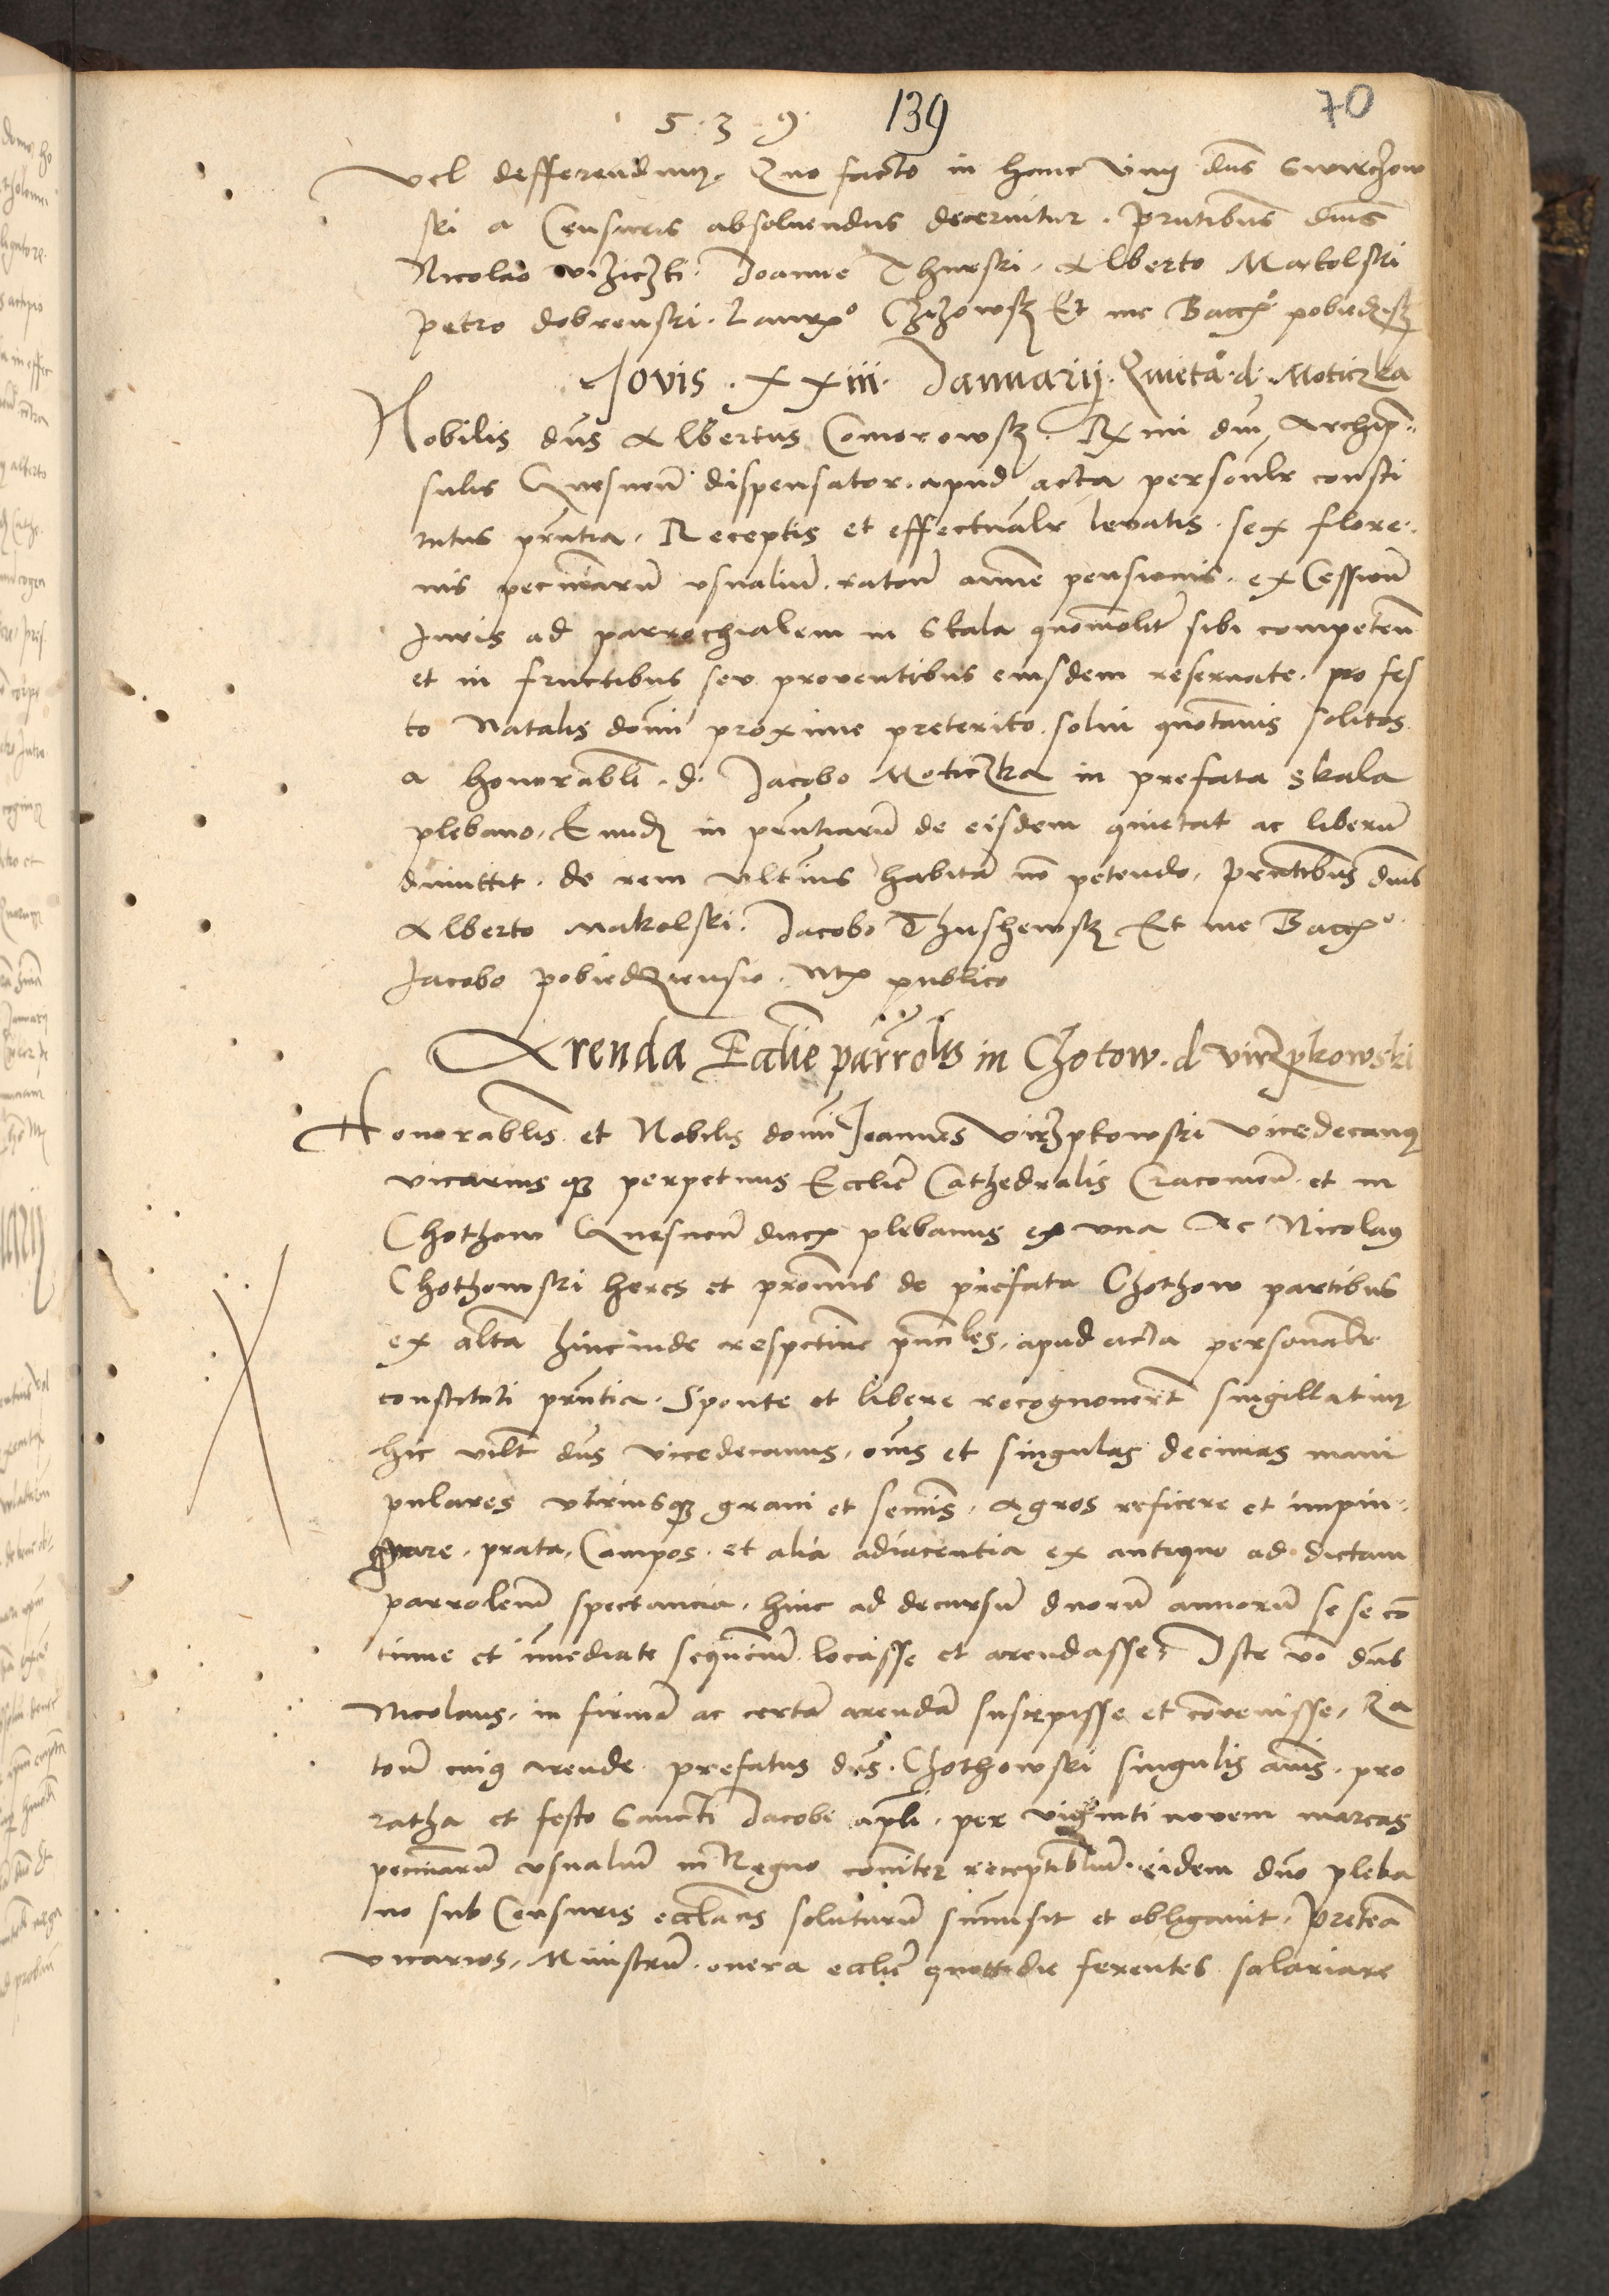 5 · 3 · 9 · 139 70
vel defferendum. Quo facto in hanc dns Swirchow
ski a Censuris absoluendus decernitur. Prntibus dnis
Nicolao Joanne Thurski. Alberto Makolski
Petro dobrenski. Et me pobiedzisk
Jovis . XXiii . Januarij . Quieta . d . Moticzka
Nobilis dns Albertus Comorowsk. R mi dni Archip
sulis Gnesnen dispensator. apud acta personlr consti
tutus prntia. Receptis et effectualr levatis. sex flore
nis pecuniaru usualiu. ratone annue pensionis. ex Cessione
Juris ad parrochialem in Skala quomolit sibi competen
et in fructibus seu proventibus eiusdem reseruate. pro fes
to Natalis domi proxime preterito. solui quotannis solitos
a honorabli. d. Jacobo Moticzka in prefata Skala
plebano. Eundem in prntiaru de eisdem quietat ac liberu
dimittit. de rem ulterius habita no petendo. Prntibus dnis
Alberto Makolski. Jacobo Et me Bacc
Jacobo pobiedziensis. publico
Arenda Ecclie parrolis in Chotow. d Wirzpkowski
Honorablis et Nobilis domi Joannes Virzpkowski vicedecanus
vicariusque perpetuus Ecclie Cathedralis Cracouien et in
Chothow Gnesnen plebanus ex una Ac Nicolaus
Chothowski heres et de prefata Chothow partibus
ex alta hincinde respective prnciples. apud acta personalr
constituti prntia. Sponte et libere recognouerut singillatim
hic videlt dns vicedecanus. oms et singulas decimas mani
pulares utriusque grani et semis. Agros reficere et impin
guare. prata. Campos. et alia adiacentia ex antiquo ad dictam
parrolem spectancia. hinc ad decursu duoru annoru se se co
tinue et imediate sequenciu. locasse et arendasse. Iste vo dns
Nicolaus. in firma ac certa arenda suscepisse et convenisse. Ra
tone cuius arende. prefatus dns. Chothowski singulis annis. pro
ratha et festo Sancti Jacobi apli. per viginti novem marcas
pecuniaru usualiu in Regno comiter receptibiliu. eidem dno pleba
no sub Censuris eccliacis soluturu sumisit et obligauit. Preterea
vicarios. Ministru. onera ecclie quottidie ferentes salariare